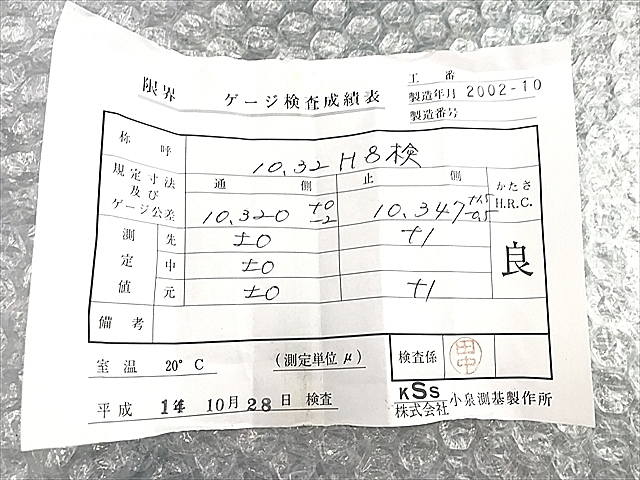 限界 ゲージ検査成績表
工番
製造年月 2002-10
製造番号
称呼 10.32 H8 検
規定寸法及びゲージ公差 通側 止側 かたさ H.R.C.
10.320 +0 -2 10.347 +1.5 -0.5
測定値 先 ±0 +1 良
中 ±0
元 ±0 +1
備考
室温 20°C (測定単位μ) 検査係 田中
平成 14 10月 28日 検査
KSS 株式会社 小泉測基製作所